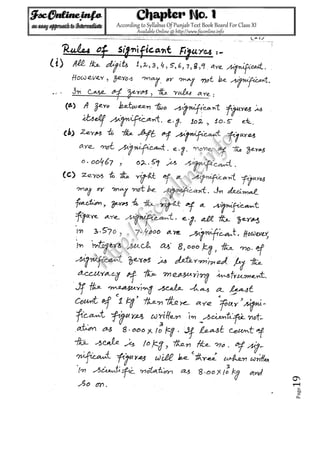 Fsc Online.info
an easy approach to Intermediate
Chapter No. 1
According to Syllabus Of Punjab Text Book Board For Class XI
Available Online @ http://www.fsconline.info
Rules of significant Figures :-
(i) All the digits 1,2,3,4,5,6,7,8,9 are significant.
However, zeros may or may not be significant.
In case of zeros, the rules are;
(a) A zero between two significant figures is
itself significant. e.g. 102, 10.5 etc.
(b) Zeros to the left of significant figures
are not significant. e.g. none of the zeros
0.00467, 02.59 is significant.
(c) Zeros to the right of a significant figures
may or may not be significant. In decimal
fraction, zeros to the right of a significant
figure are significant. e.g. all the zeros
in 3.570, 7.4000 are significant. However,
in integers such as 8,000 kg, the no. of
significant zeros is determined by the
accuracy of the measuring instrument.
If the measuring scale has a least
Count of '1 kg' then there are 'four' signi-
ficant figures written in scientific not-
ation as 8.000 x 10³ kg. If least count of
the scale is 10 kg, then the no. of sig-
nificant figures will be 'three' when written
in scientific notation as 8.00 x 10³ kg and
so on.
Page 19